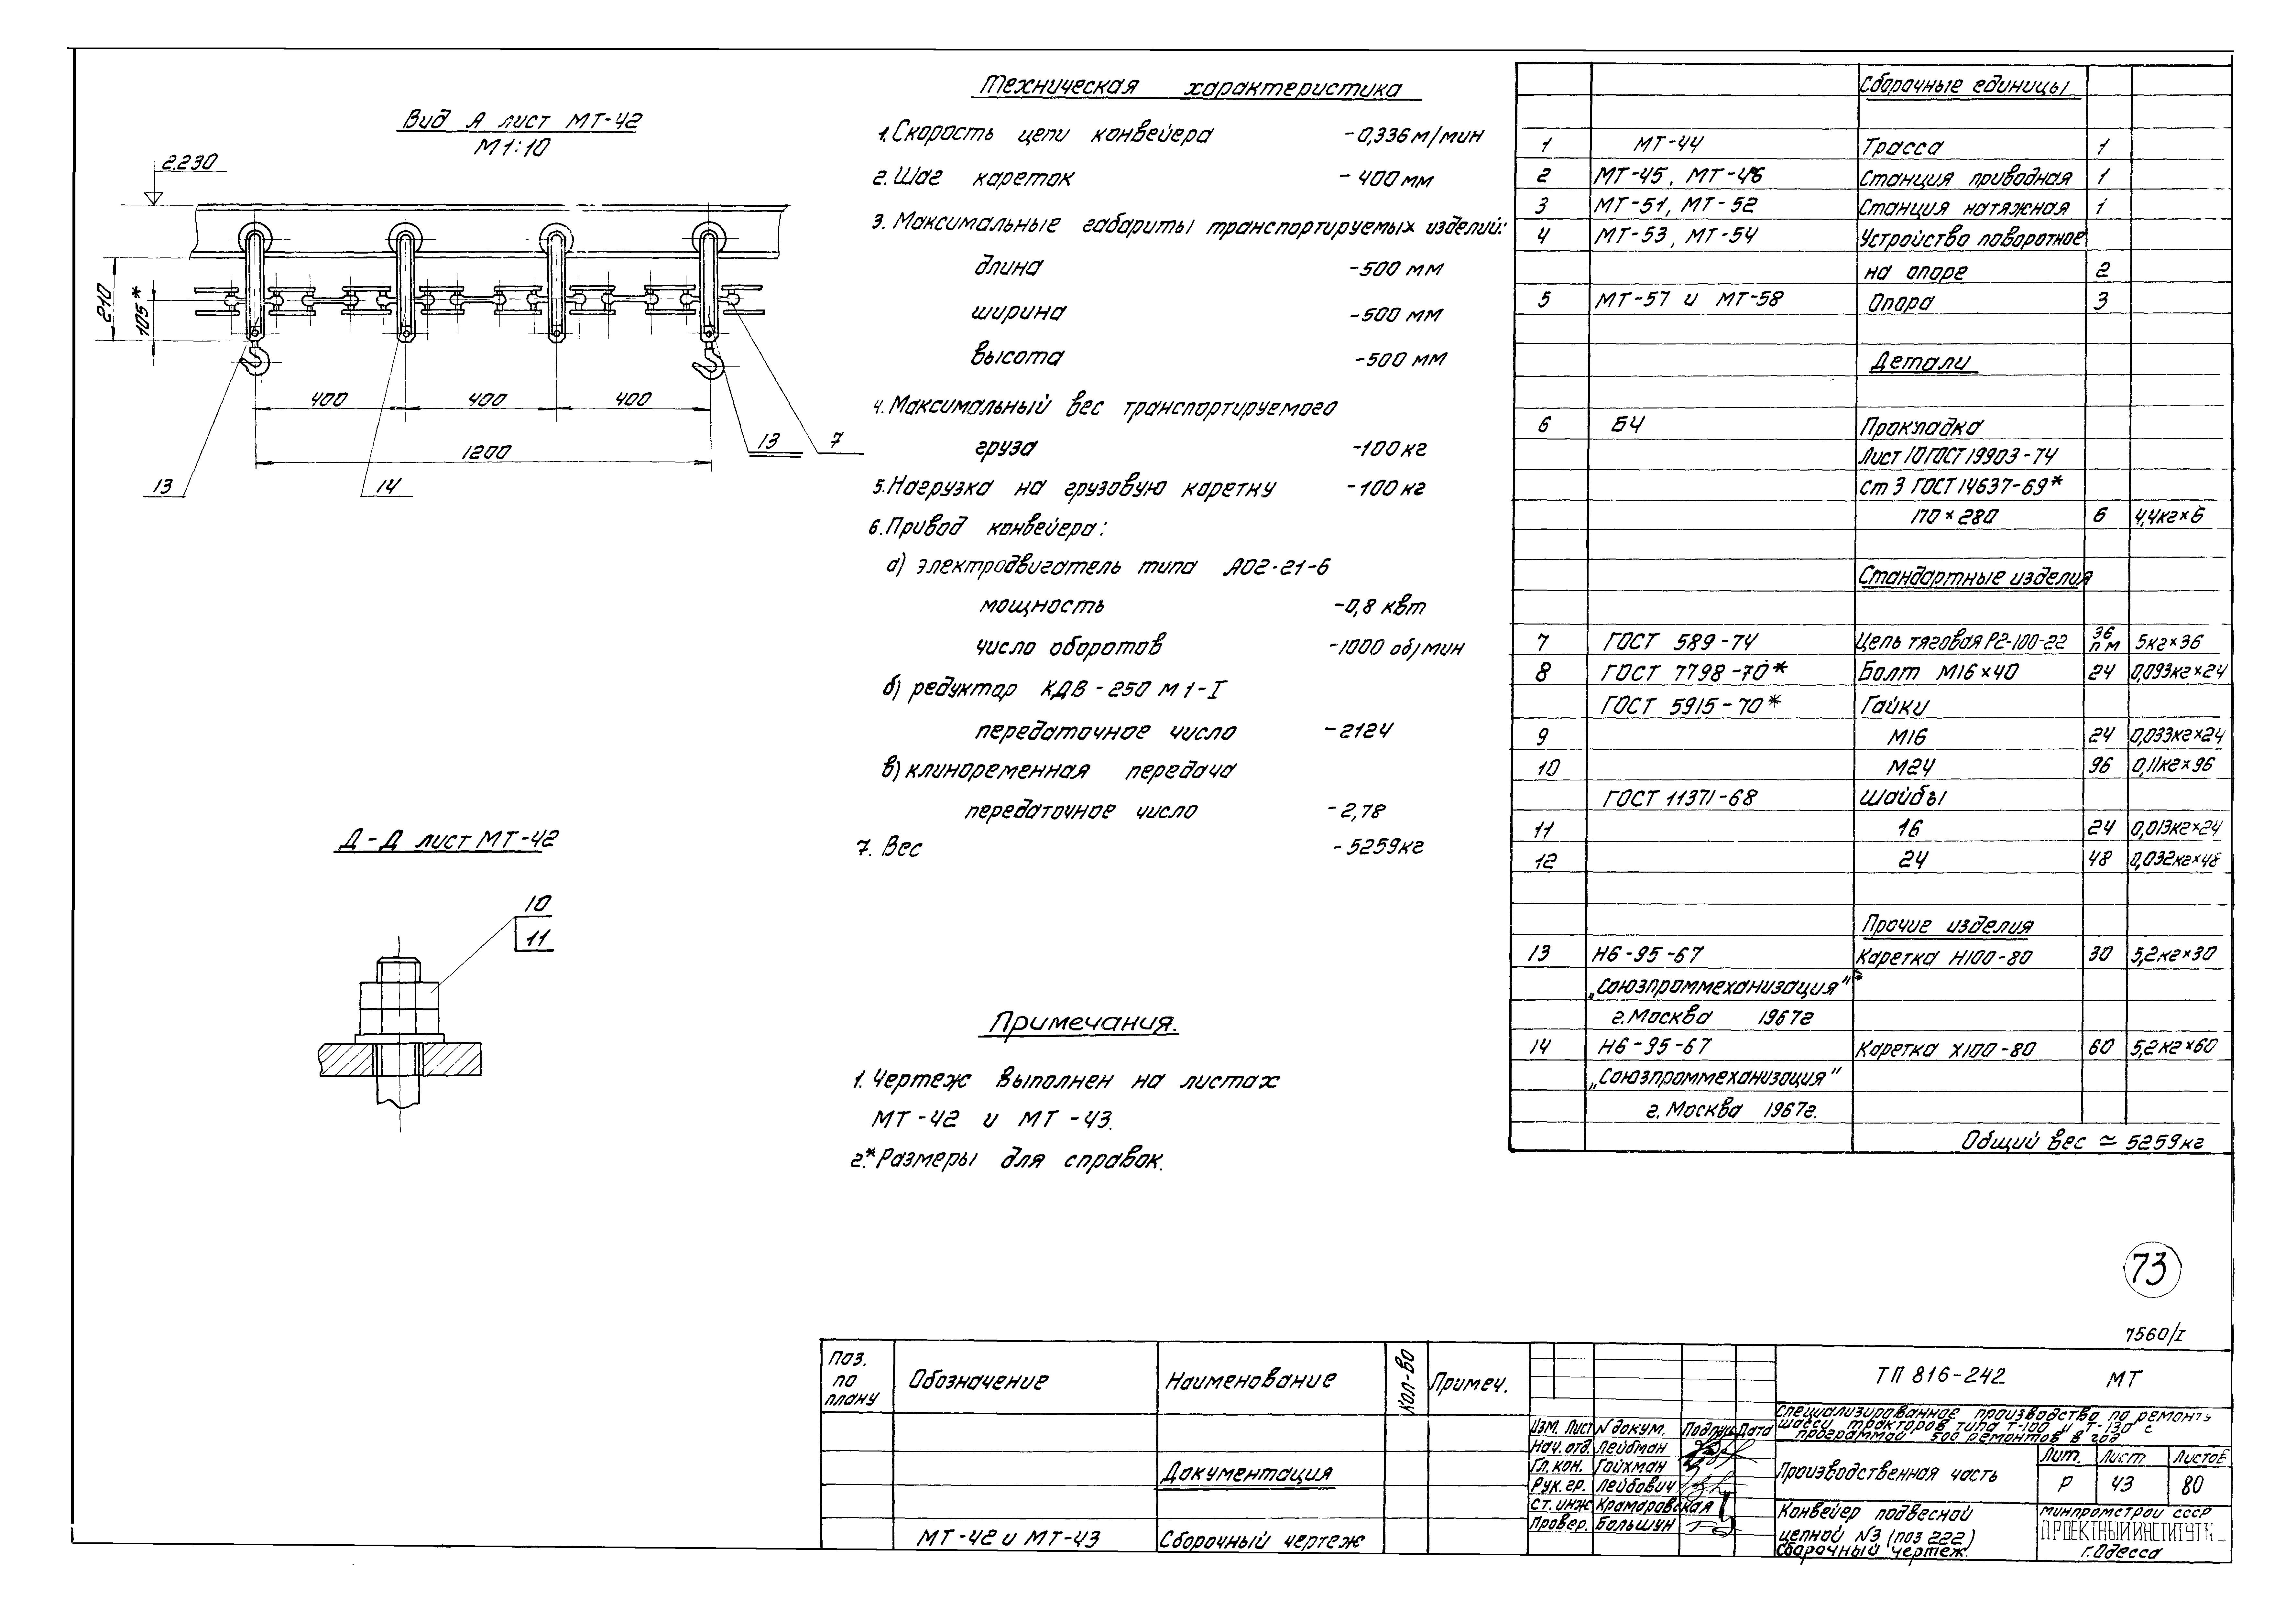 Вид А лист МТ-42
М1:10
2.230
210
105*
400
400
400
1200
13
14
13
7
Д-Д лист МТ-42
10
11
Техническая характеристика
1. Скорость цепи конвейера -0,336 м/мин
2. Шаг кареток - 400 мм
3. Максимальные габариты транспортируемых изделий:
длина -500 мм
ширина -500 мм
высота -500 мм
4. Максимальный вес транспортируемого
груза -100 кг
5. Нагрузка на грузовую каретку -100 кг
6. Привод конвейера:
а) электродвигатель типа АО2-21-6
мощность -0,8 квт
число оборотов -1000 об/мин
б) редуктор КДВ-250 М1-I
передаточное число -2124
в) клиноременная передача
передаточное число -2,78
7. Вес -5259кг
Примечания.
1. Чертеж выполнен на листах
МТ-42 и МТ-43.
2.* Размеры для справок.
Сборочные единицы
1 МТ-44 Трасса 1
2 МТ-45, МТ-46 Станция приводная 1
3 МТ-51, МТ-52 Станция натяжная 1
4 МТ-53, МТ-54 Устройство поворотное
на опоре 2
5 МТ-57 и МТ-58 Опора 3
Детали
6 БЧ Прокладка
Лист 10 ГОСТ 19903-74
ст 3 ГОСТ 14637-69*
170×280 6 4,4кг×6
Стандартные изделия
7 ГОСТ 589-74 Цепь тяговая Р2-100-22 36 п м 5кг×36
8 ГОСТ 7798-70* Болт М16×40 24 0,093кг×24
ГОСТ 5915-70* Гайки
9 М16 24 0,033кг×24
10 М24 96 0,11кг×96
ГОСТ 11371-68 Шайбы
11 16 24 0,013кг×24
12 24 48 0,032кг×48
Прочие изделия
13 Н6-95-67 Каретка Н100-80 30 5,2кг×30
„Союзпроммеханизация"
г. Москва 1967г
14 Н6-95-67 Каретка Х100-80 60 5,2кг×60
„Союзпроммеханизация"
г. Москва 1967г.
Общий вес ≃ 5259кг
73
7560/I
Поз. по плану Обозначение Наименование Кол-во Примеч.
Документация
МТ-42 и МТ-43 Сборочный чертеж
Изм. Лист N докум. Подпись Дата
Нач. отд. Лейбман
Гл. кон. Гойхман
Рук. гр. Лейбович
Ст. инж Крамаровская
Провер. Большун
ТП 816-242 МТ
Специализированное производство по ремонту
шасси тракторов типа Т-100 и Т-130 с
программой 500 ремонтов в год
Производственная часть
Лит. Лист Листов
Р 43 80
Конвейер подвесной
цепной N3 (поз 222)
Сборочный чертеж.
Минпромстрой СССР
ПРОЕКТНЫЙ ИНСТИТУТ
г. Одесса